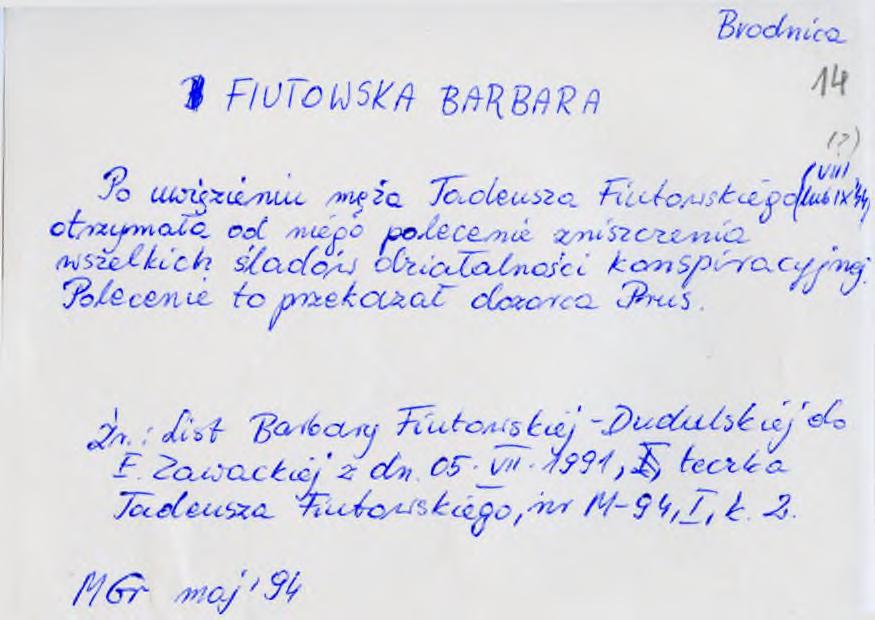 Brodnica
14
FIUTOWSKA BARBARA
(?)
Po uwięzieniu męża Tadeusza Fiutowskiego (VIII lub IX '44)
otrzymała od niego polecenie zniszczenia
wszelkich śladów działalności konspiracyjnej.
Polecenie to przekazał dozorca Prus.
Źr.: List Barbary Fiutowskiej-Dudulskiej do
E. Zawackiej z dn. 05. VII. 1991, teczka
Tadeusza Fiutowskiego, nr M-94, I, k. 2.
MGr maj '94